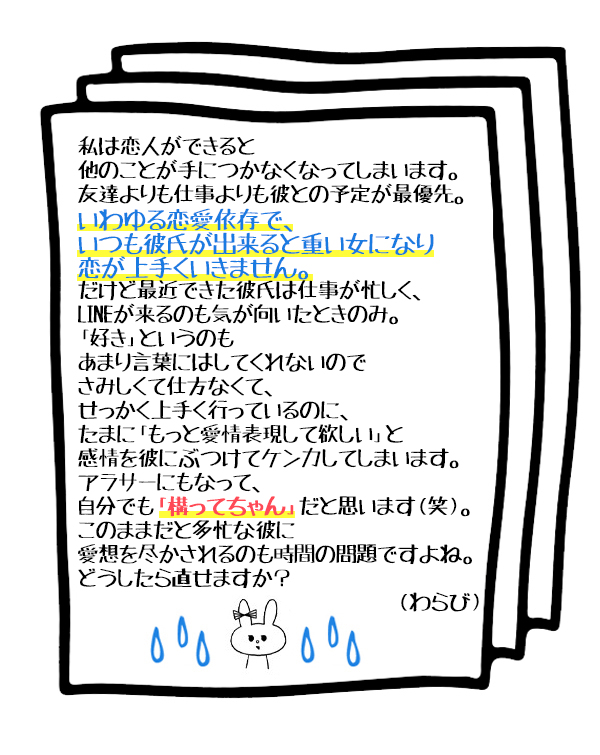 私は恋人ができると
他のことが手につかなくなってしまいます。
友達よりも仕事よりも彼との予定が最優先。
いわゆる恋愛依存で、
いつも彼氏が出来ると重い女になり
恋が上手くいきません。
だけど最近できた彼氏は仕事が忙しく、
LINEが来るのも気が向いたときのみ。
「好き」というのも
あまり言葉にはしてくれないので
さみしくて仕方なくて、
せっかく上手く行っているのに、
たまに「もっと愛情表現して欲しい」と
感情を彼にぶつけてケンカしてしまいます。
アラサーにもなって、
自分でも「構ってちゃん」だと思います(笑)。
このままだと多忙な彼に
愛想を尽かされるのも時間の問題ですよね。
どうしたら直せますか?
(わらび)